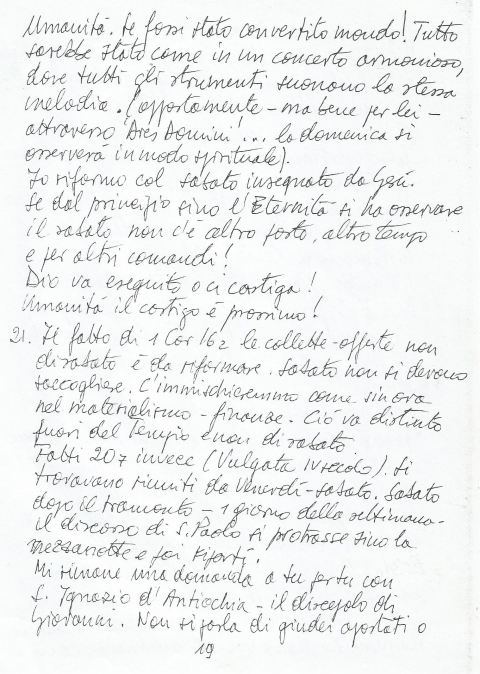 Umanità. Se fossi stato convertito mondo! Tutto
sarebbe stato come in un concerto armonioso,
dove tutti gli strumenti suonano la stessa
melodia. (apportamente - ma bene per lei -
attraverso 'Dies Domini'!... la domenica si
osserverà in modo spirituale).
Io riformo col sabato insegnato da Gesù.
Se dal principio sino l'Eternità si ha osservare
il sabato non c'è altro posto, altro tempo
e per altri comandi!
Dio va eseguito o ci castiga!
Umanità il castigo è prossimo!
21. Il fatto di 1 Cor 16₂ le collette-offerte non
di sabato è da riformare. Sabato non si devono
raccogliere. C'immischieremmo come sin ora
nel materialismo - finanze. Ciò va distinto
fuori del Tempio e non di sabato.
Fatti 20₇ invece (Vulgata IV secolo). Si
trovavano riuniti da Venerdì-sabato. Sabato
dopo il tramonto - 1 giorno della settimana -
il discorso di S. Paolo si protrasse sino la
mezzanotte e poi ripartì.
Mi rimane una domanda a tu per tu con
S. Ignazio d'Antiochia - il discepolo di
Giovanni. Non si parla di giudei apostati o
19